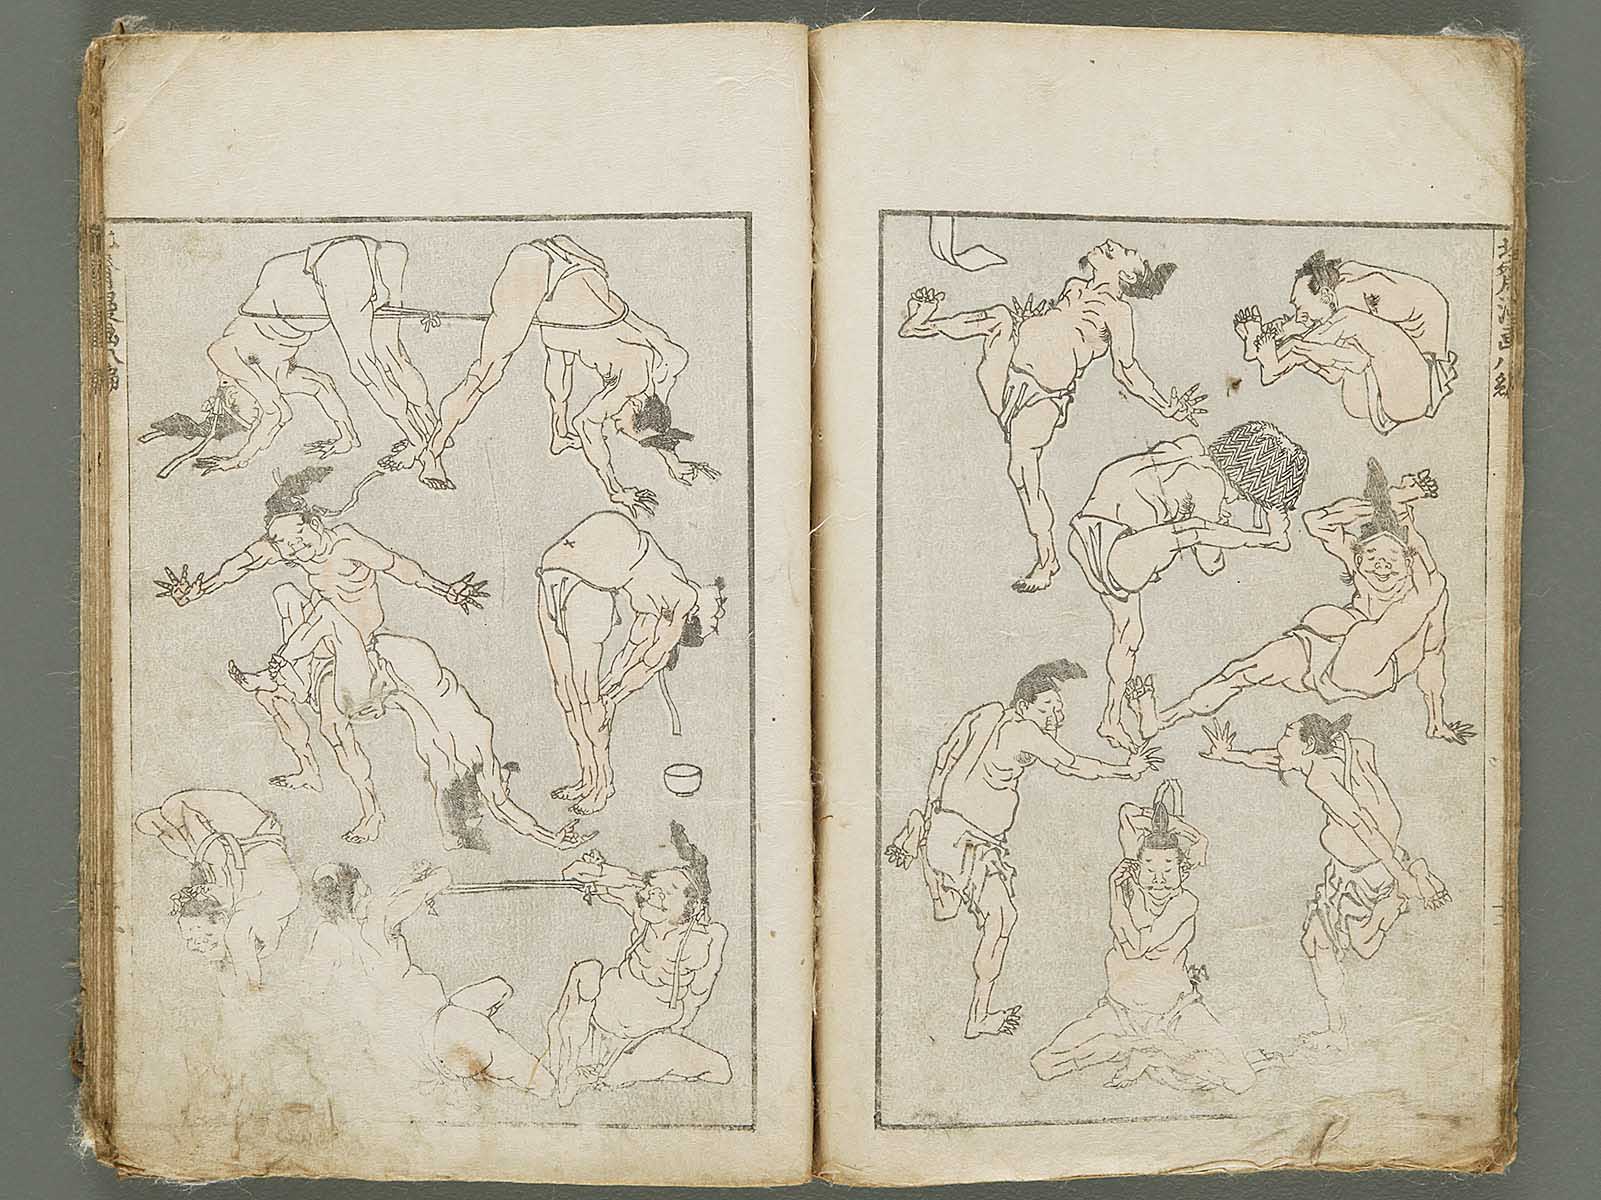 北斎漫画八編
北斎漫画八編